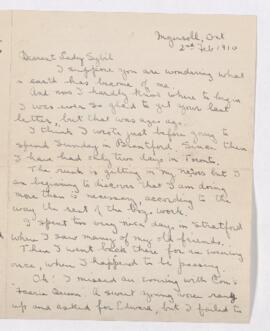 Ingersoll, Ont
2nd Feb 1910
Dearest Lady Sybil
I suppose you are wondering what
on earth has become of me.
And now I hardly know where to begin
I was ever so glad to get your last
letter, but that was ages ago.
I think I wrote just before going to
spend Sunday in Brantford. Since then
I have had only two days in Toronto.
The rush is getting on my nerves but I
am beginning to discover that I am doing
more than is necessary, according to the
way the rest of the boys work.
I spent two very nice days in Stratford
when I saw many of my old friends.
Then I went back there for an evening
once, when I happened to be passing.
Oh! I missed an evening with Con's
Faerie Queen. A sweet young voice rang
up and asked for Edward, but I failed to